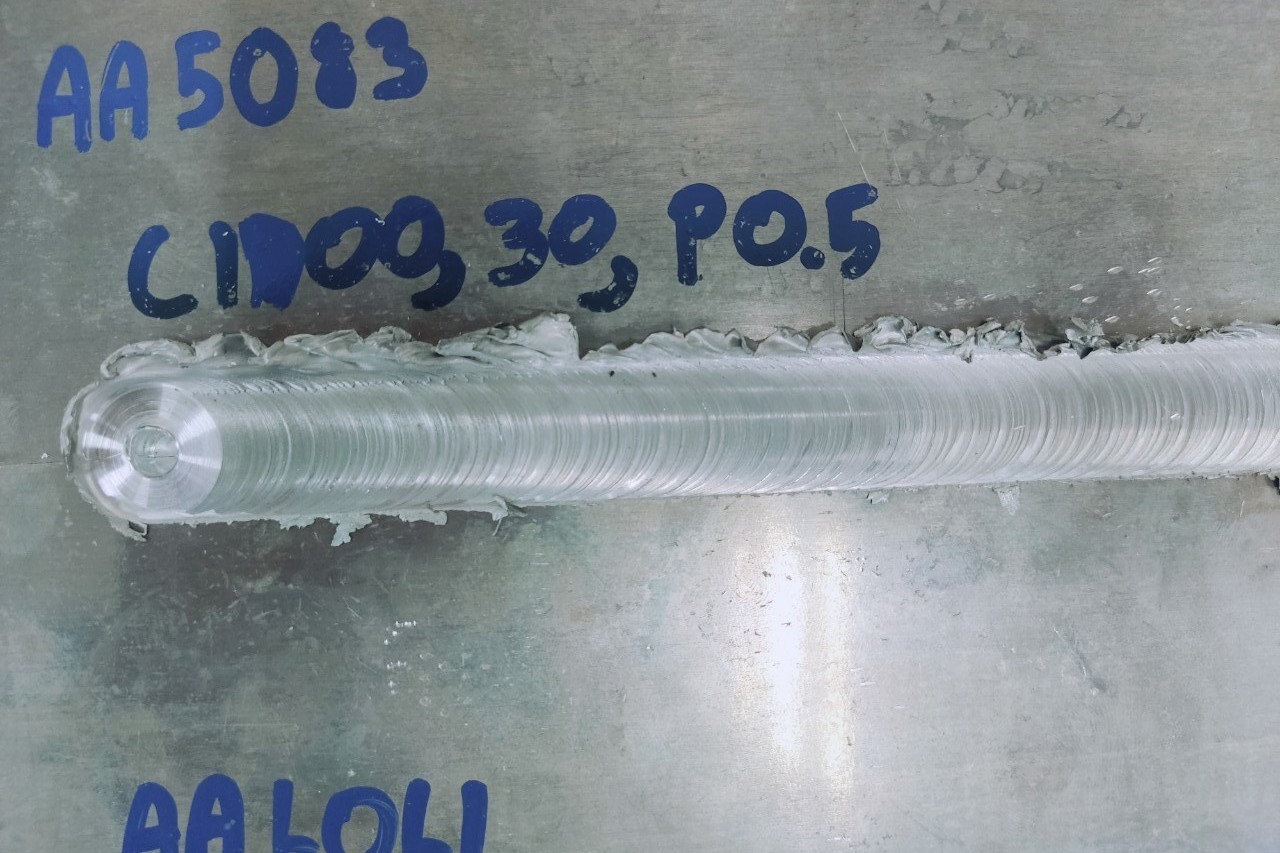 AA 5083
C1000, 30, P0.5
AA6061